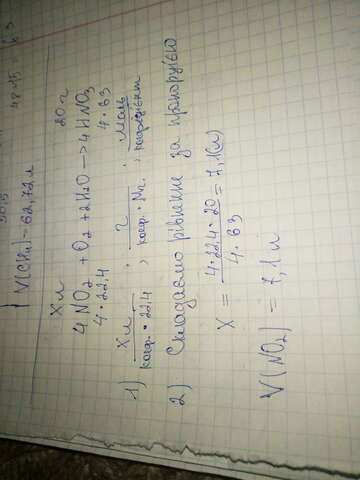 V(CH₄) = 62,72 л
x л 20 г
4NO₂ + O₂ + 2H₂O → 4HNO₃
4·22,4 4·63
1) x л / коеф.·22,4 ; г / коеф.·Mr. ;
2) Складаємо рівнення за пропорцією
x = 4·22,4·20 / 4·63 = 7,1(л)
V(NO₂) = 7,1 л